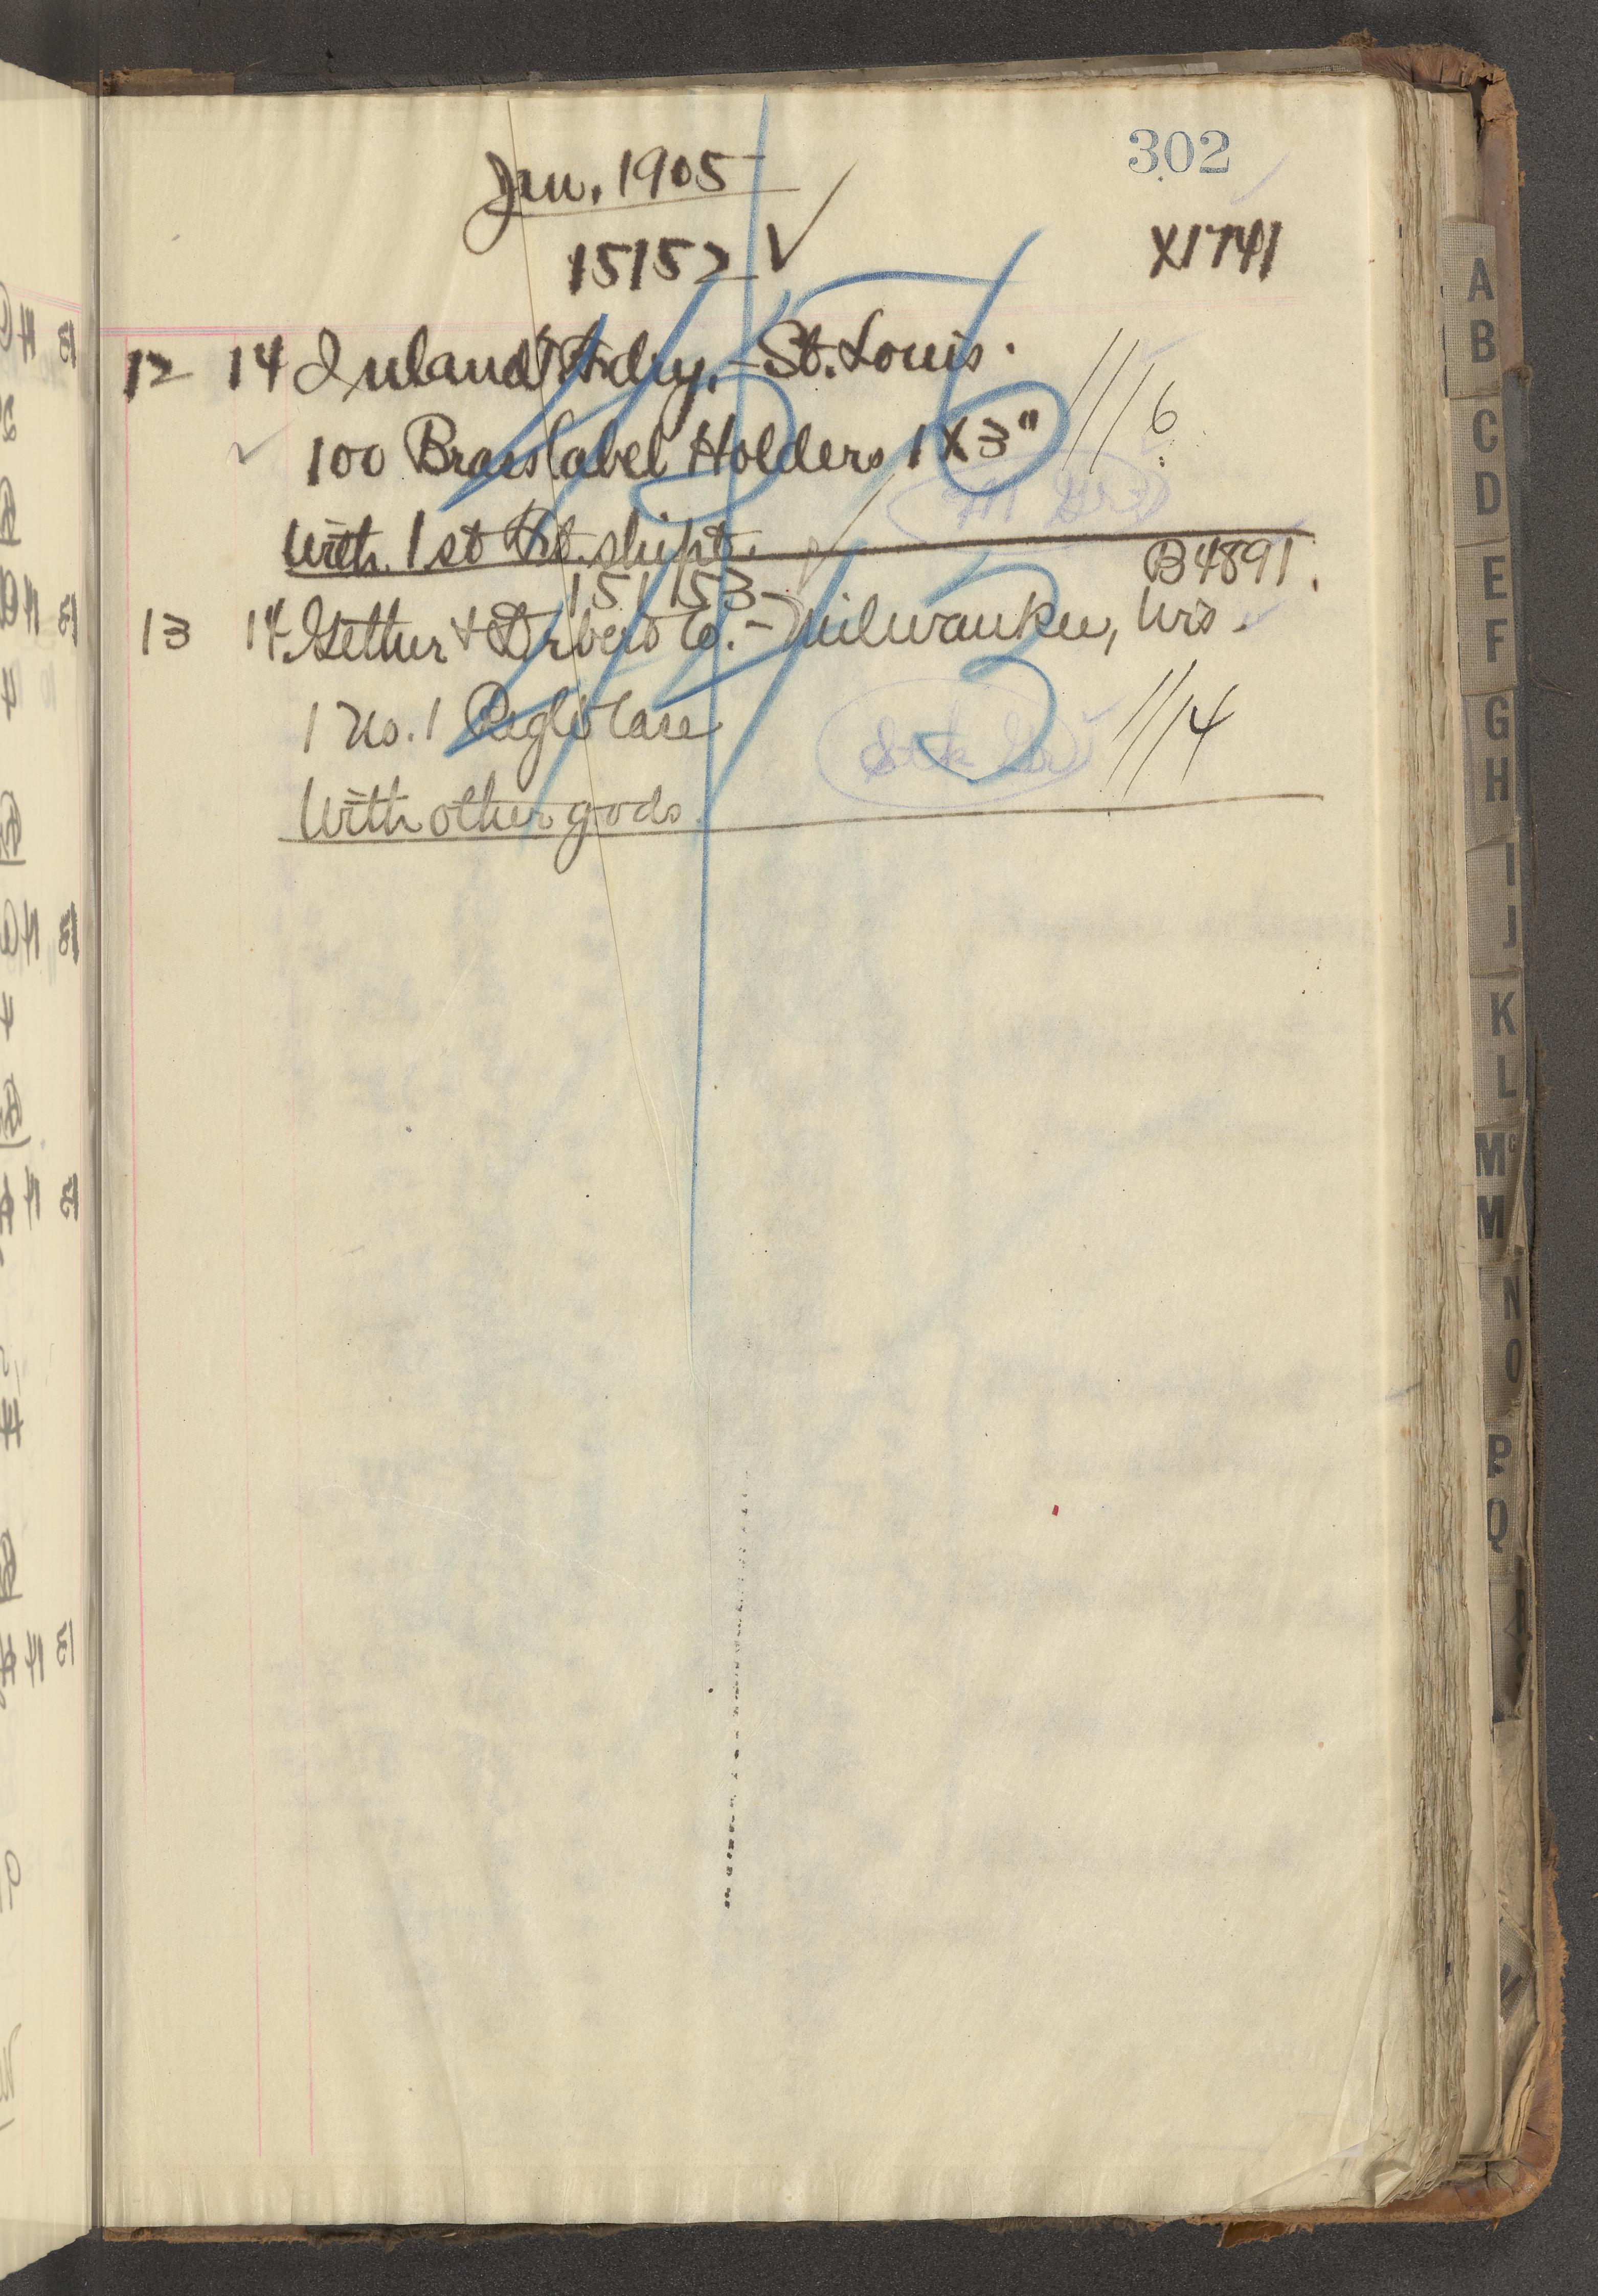 302
Jan. 1905
15152 ✓ X1741
12 14 Inland T. Fdry. - St. Louis.
100 Brass label Holders 1 X 3" ///6
With 1st frt. shipt.
15153 B4891.
13 14 Gether & Drbert Co. - Milwaukee, Wis.
1 No. 1 Reglet Case ///4
With other goods.
A
B
C
D
E
F
G
H
I
J
K
L
Mc
M
N
O
P
Q